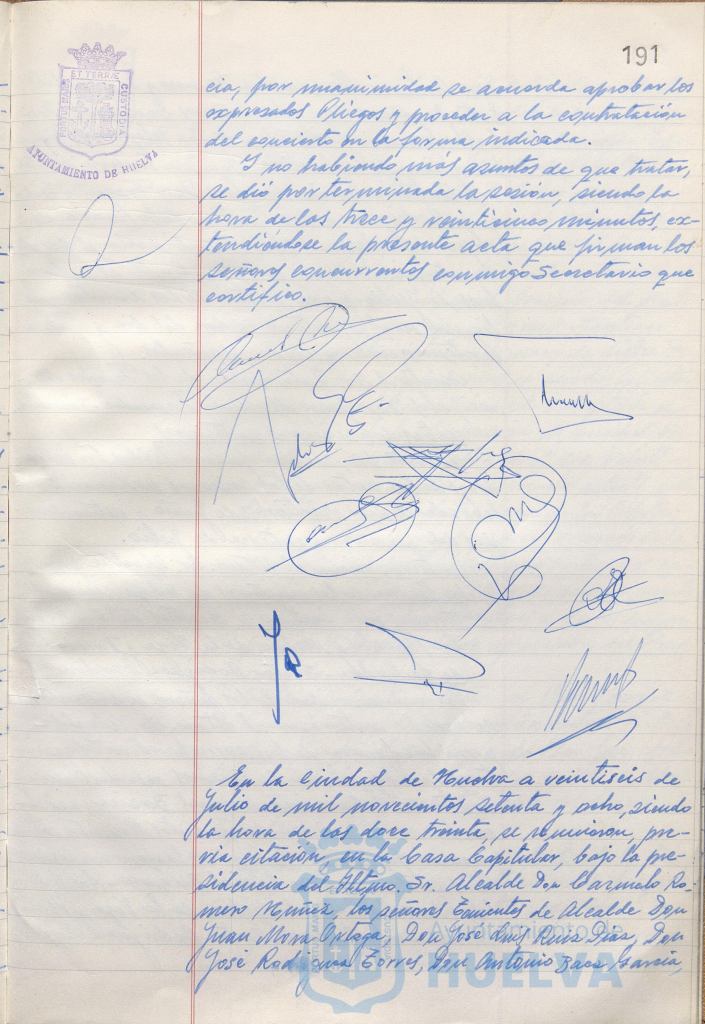 191
ET TERRÆ
CUSTODIA
AYUNTAMIENTO DE HUELVA
cia, por unanimidad se acuerda aprobar los
expresados Pliegos y proceder a la contratación
del concierto en la forma indicada.
Y no habiendo más asuntos de que tratar,
se dió por terminada la sesión, siendo la
hora de las trece y veinticinco minutos, ex-
tendiéndose la presente acta que firman los
señores concurrentes conmigo Secretario que
certifico.
En la Ciudad de Huelva a veintiseis de
Julio de mil novecientos setenta y ocho, siendo
la hora de las doce treinta, se reunieron, pre-
via citación en la Casa Capitular, bajo la pre-
sidencia del Iltmo. Sr. Alcalde Don Carmelo Ro-
mero Núñez, los señores Tenientes de Alcalde Don
Juan Mora Ortega, Don José Luis Ruiz Díaz, Don
José Rodríguez Torres, Don Antonio Baez García,
Ayuntamiento de
HUELVA